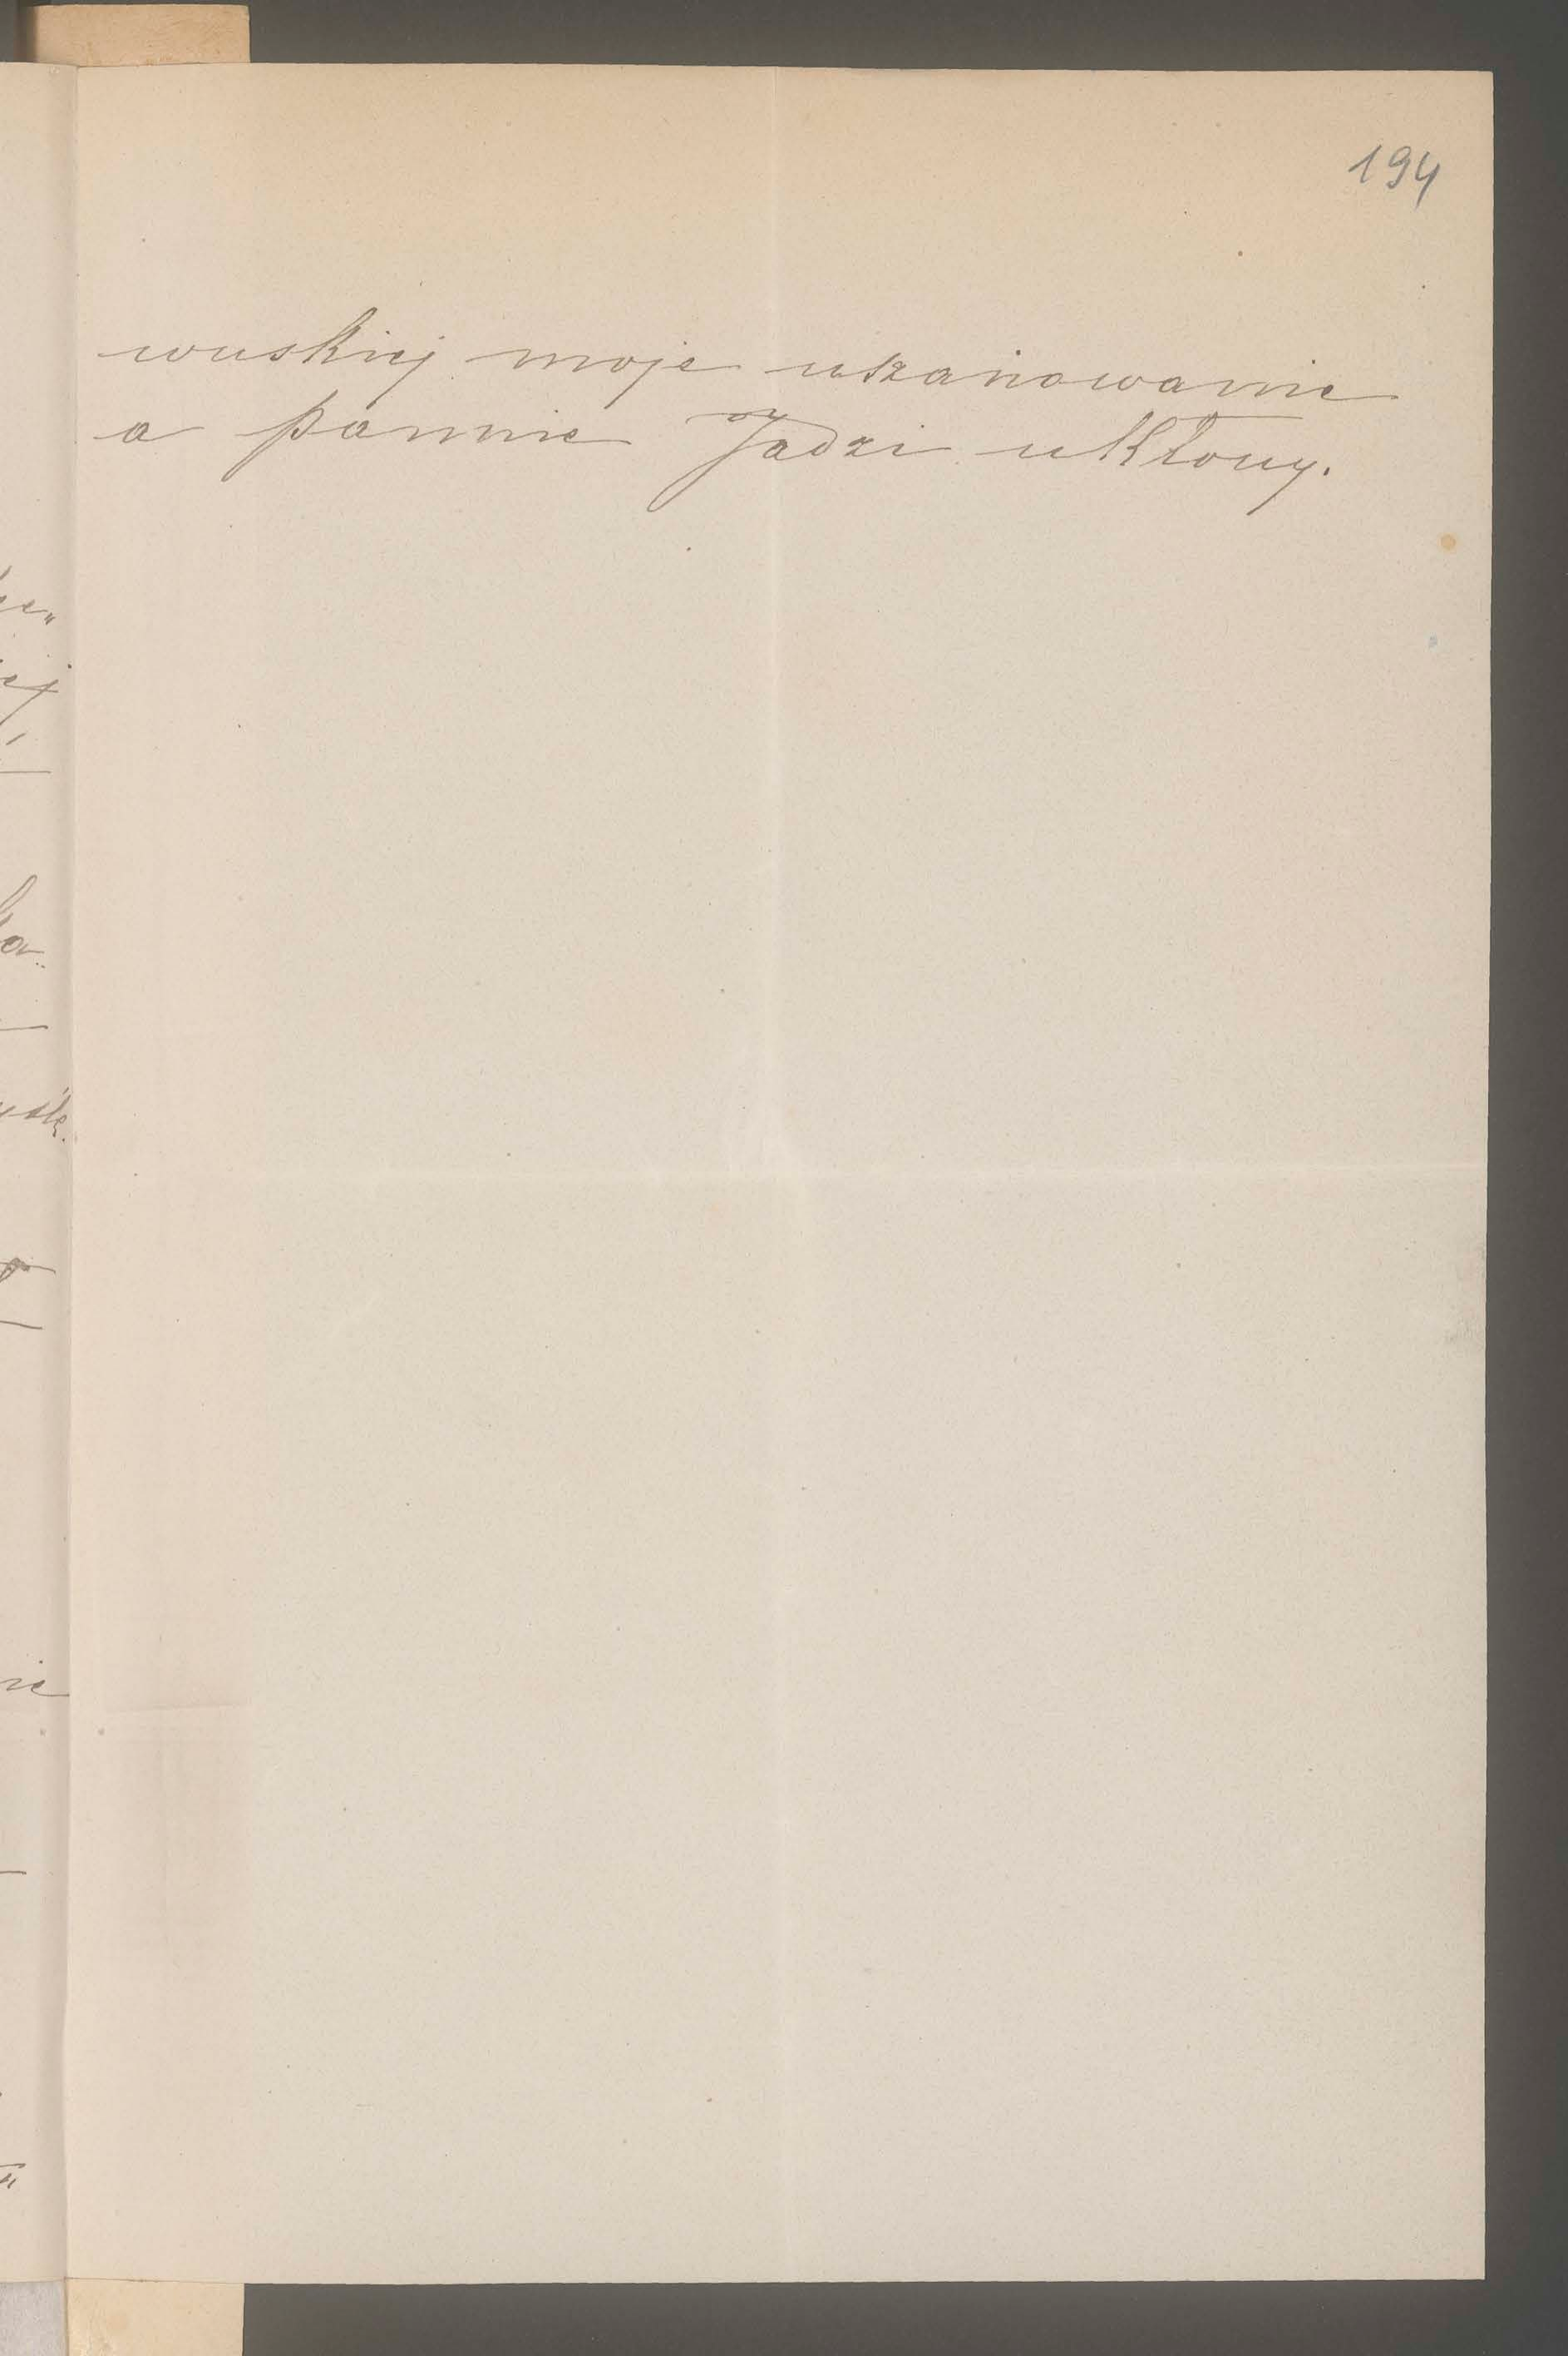 194
wuskiej moje uszanowanie
a pannie Jadzi ukłony.